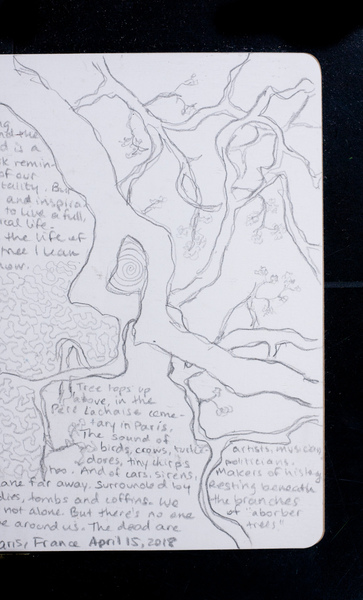 nd the
d is a
k remin-
of our
tality. But
and inspira
to live a full,
ical life.
the life of
tree I lean
now.
Tree tops up
above, in the
Père Lachaise ceme-
tary in Paris.
The sound of
birds, crows, turtle
doves, tiny chirps
too. And of cars, sirens,
ane far away. Surrounded by
dies, tombs and coffins. We
not alone. But there's no one
e around us. The dead are
artists, musicians,
politicians.
Makers of history
Resting beneath
the branches
of "aborber
trees"
aris, France April 15, 2018